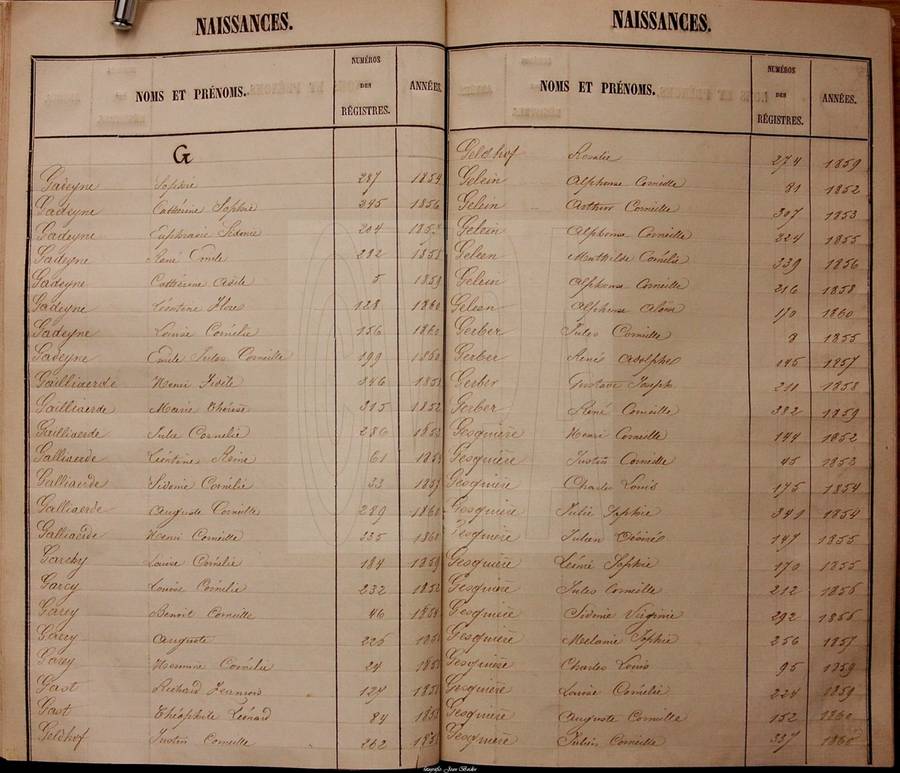 NAISSANCES.
NOMS ET PRÉNOMS. NUMÉROS DES RÉGISTRES. ANNÉES.
G
Gadeyne Sophie 287 1854
Gadeyne Cathérine Sophie 345 1856
Gadeyne Euphrasie Sidonie 204
Gadeyne René Emile 282 1858
Gadeyne Cathérine Adèle 5 1859
Gadeyne Léontine Flore 128 1860
Gadeyne Louise Cornélie 156 1860
Gadeyne Emile Jules Corneille 199 1860
Gailliaerde Henri Fidèle 346
Gailliaerde Marie Thérèse 315 1852
Gailliaerde Julie Cornélie 286 1853
Galliaerde Léontine Reine 61
Galliaerde Sidonie Cornélie 33
Galliaerde Auguste Corneille 289 1860
Galliaerde Henri Corneille 335 1860
Garchy Louise Cornélie 184
Garcy Louise Cornélie 232 1852
Garcy Benoit Corneille 46
Garcy Auguste 226
Garcy Hermine Cornélie 24
Gast Richard 129
Gast Théophile Léonard 84
Geldhof Justin Corneille 262
NAISSANCES.
NOMS ET PRÉNOMS. NUMÉROS DES RÉGISTRES. ANNÉES.
Geldhof Rosalie 274 1859
Gelein Alphonse Corneille 81 1852
Gelein Arthur Corneille 307 1853
Geleen Alphonse Corneille 224 1855
Geleen Mathilde Cornélie 339 1856
Gelein Alphonse Corneille 216 1858
Geleen Alphonse 170 1860
Gerber Jules Corneille 9 1855
Gerber René Adolphe 145 1857
Gerber Gustave Joseph 211 1858
Gerber René Corneille 382 1859
Gesquière Henri Corneille 144 1852
Gesquière Justin Corneille 45 1853
Gesquière Charles Louis 175 1854
Gesquière Julie Sophie 341 1854
Gesquière Julien Désiré 147 1855
Gesquière Léonie Sophie 170 1855
Gesquière Jules Corneille 212 1856
Gesquière Sidonie Virginie 292 1856
Gesquière Mélanie Sophie 256 1857
Gesquière Charles Louis 95 1859
Gesquière Louise Cornélie 224 1859
Gesquière Auguste Corneille 152 1860
Gesquière Julien Corneille 337 1860